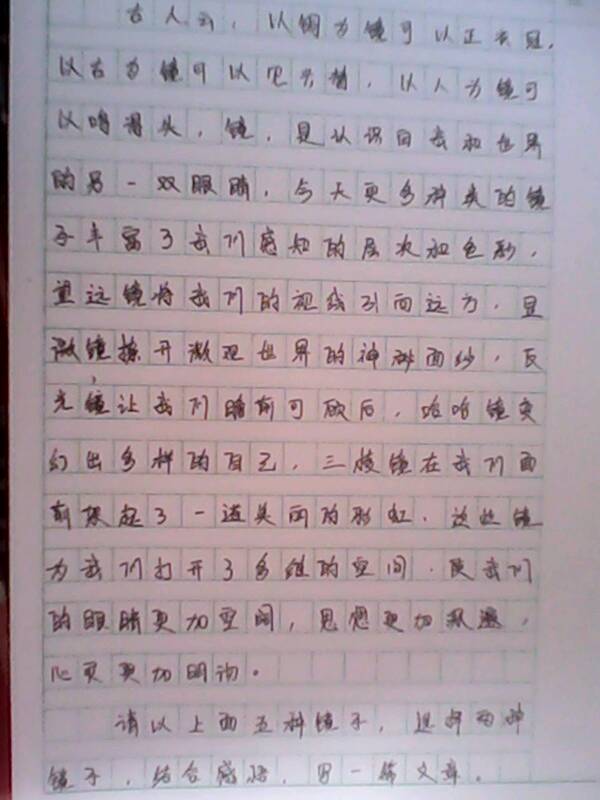 古人云，以铜为镜可以正衣冠，
以古为镜可以见兴替，以人为镜可
以明得失，镜，是认识自我和世界
的另一双眼睛，今天更多种类的镜
子丰富了我们感知的层次和色彩，
望远镜将我们的视线引向远方，显
微镜揭开微观世界的神秘面纱，反
光镜让我们瞻前可顾后，哈哈镜变
幻出多样的自己，三棱镜在我们面
前架起了一道美丽的彩虹，这些镜
为我们打开了多维的空间，使我们
的眼睛更加空阔，思想更加飘逸，
心灵更加明询。
请以上面五种镜子，选择两种
镜子，结合感悟，写一篇文章。